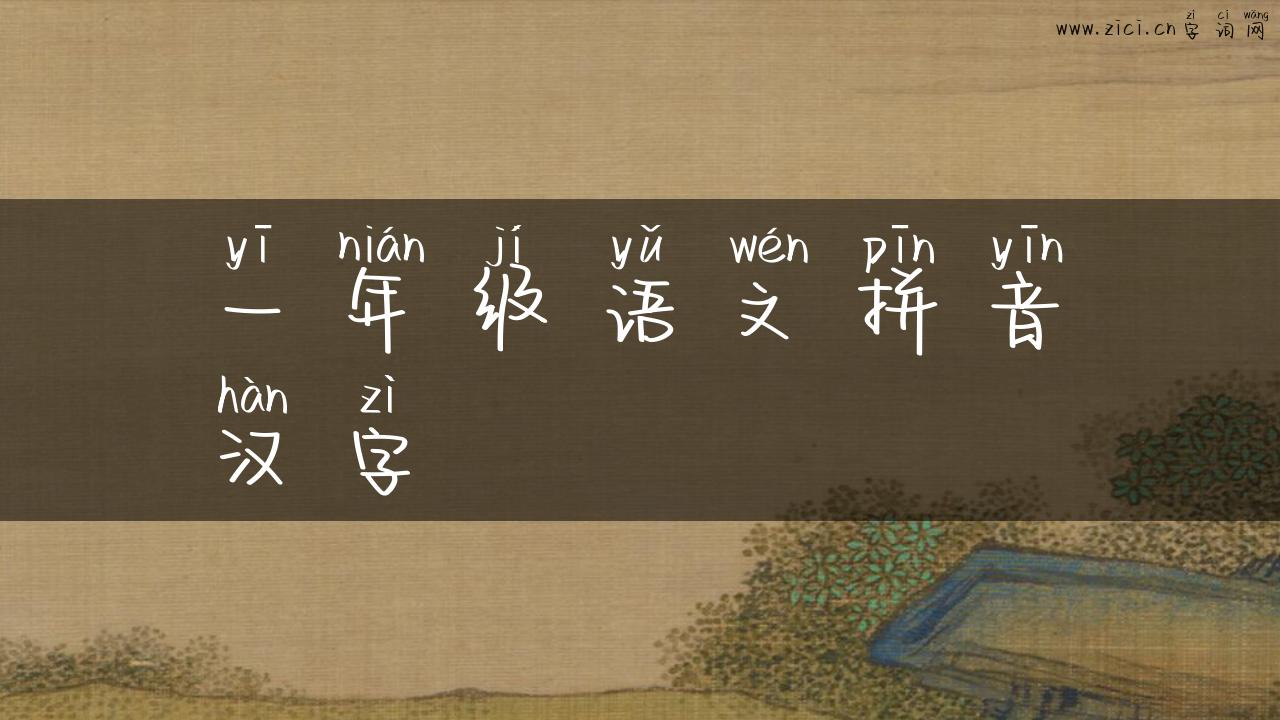 zì cí wǎng
www.zici.cn 字词网
yī nián jí yǔ wén pīn yīn
一年级语文拼音
hàn zì
汉字